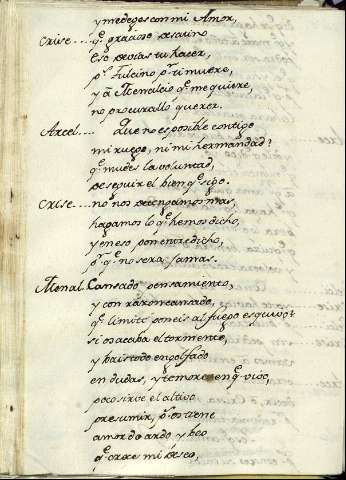 y me deges con mi Amor,
Crise.... q.e gracioso desatino
Eso devias tu hacer,
p.r Fulcino p.r ti muere,
y â Menalcio q.e me quiere,
no procurallo querer.
Arcel.... Que no es posible contigo
mi ruego, ni mi hermandad?
q.e mudes la voluntad,
de seguir el bien q.e sigo.
Crise.... no nos detengamos mas,
hagamos lo q.e hemos dicho,
y en eso pon entredicho,
p.r q.e no sera jamas.
Menal. Cansado pensamiento,
y con razon cansado,
q.e limite poneis al fuego esquivo?
si os acaba el tormento,
y bais todo engolfado
en dudas, y temores en q.e vivo,
poco sirve el altivo
presumir, p.r os tiene
amor do ardo y beo
q.e crece mi deseo,